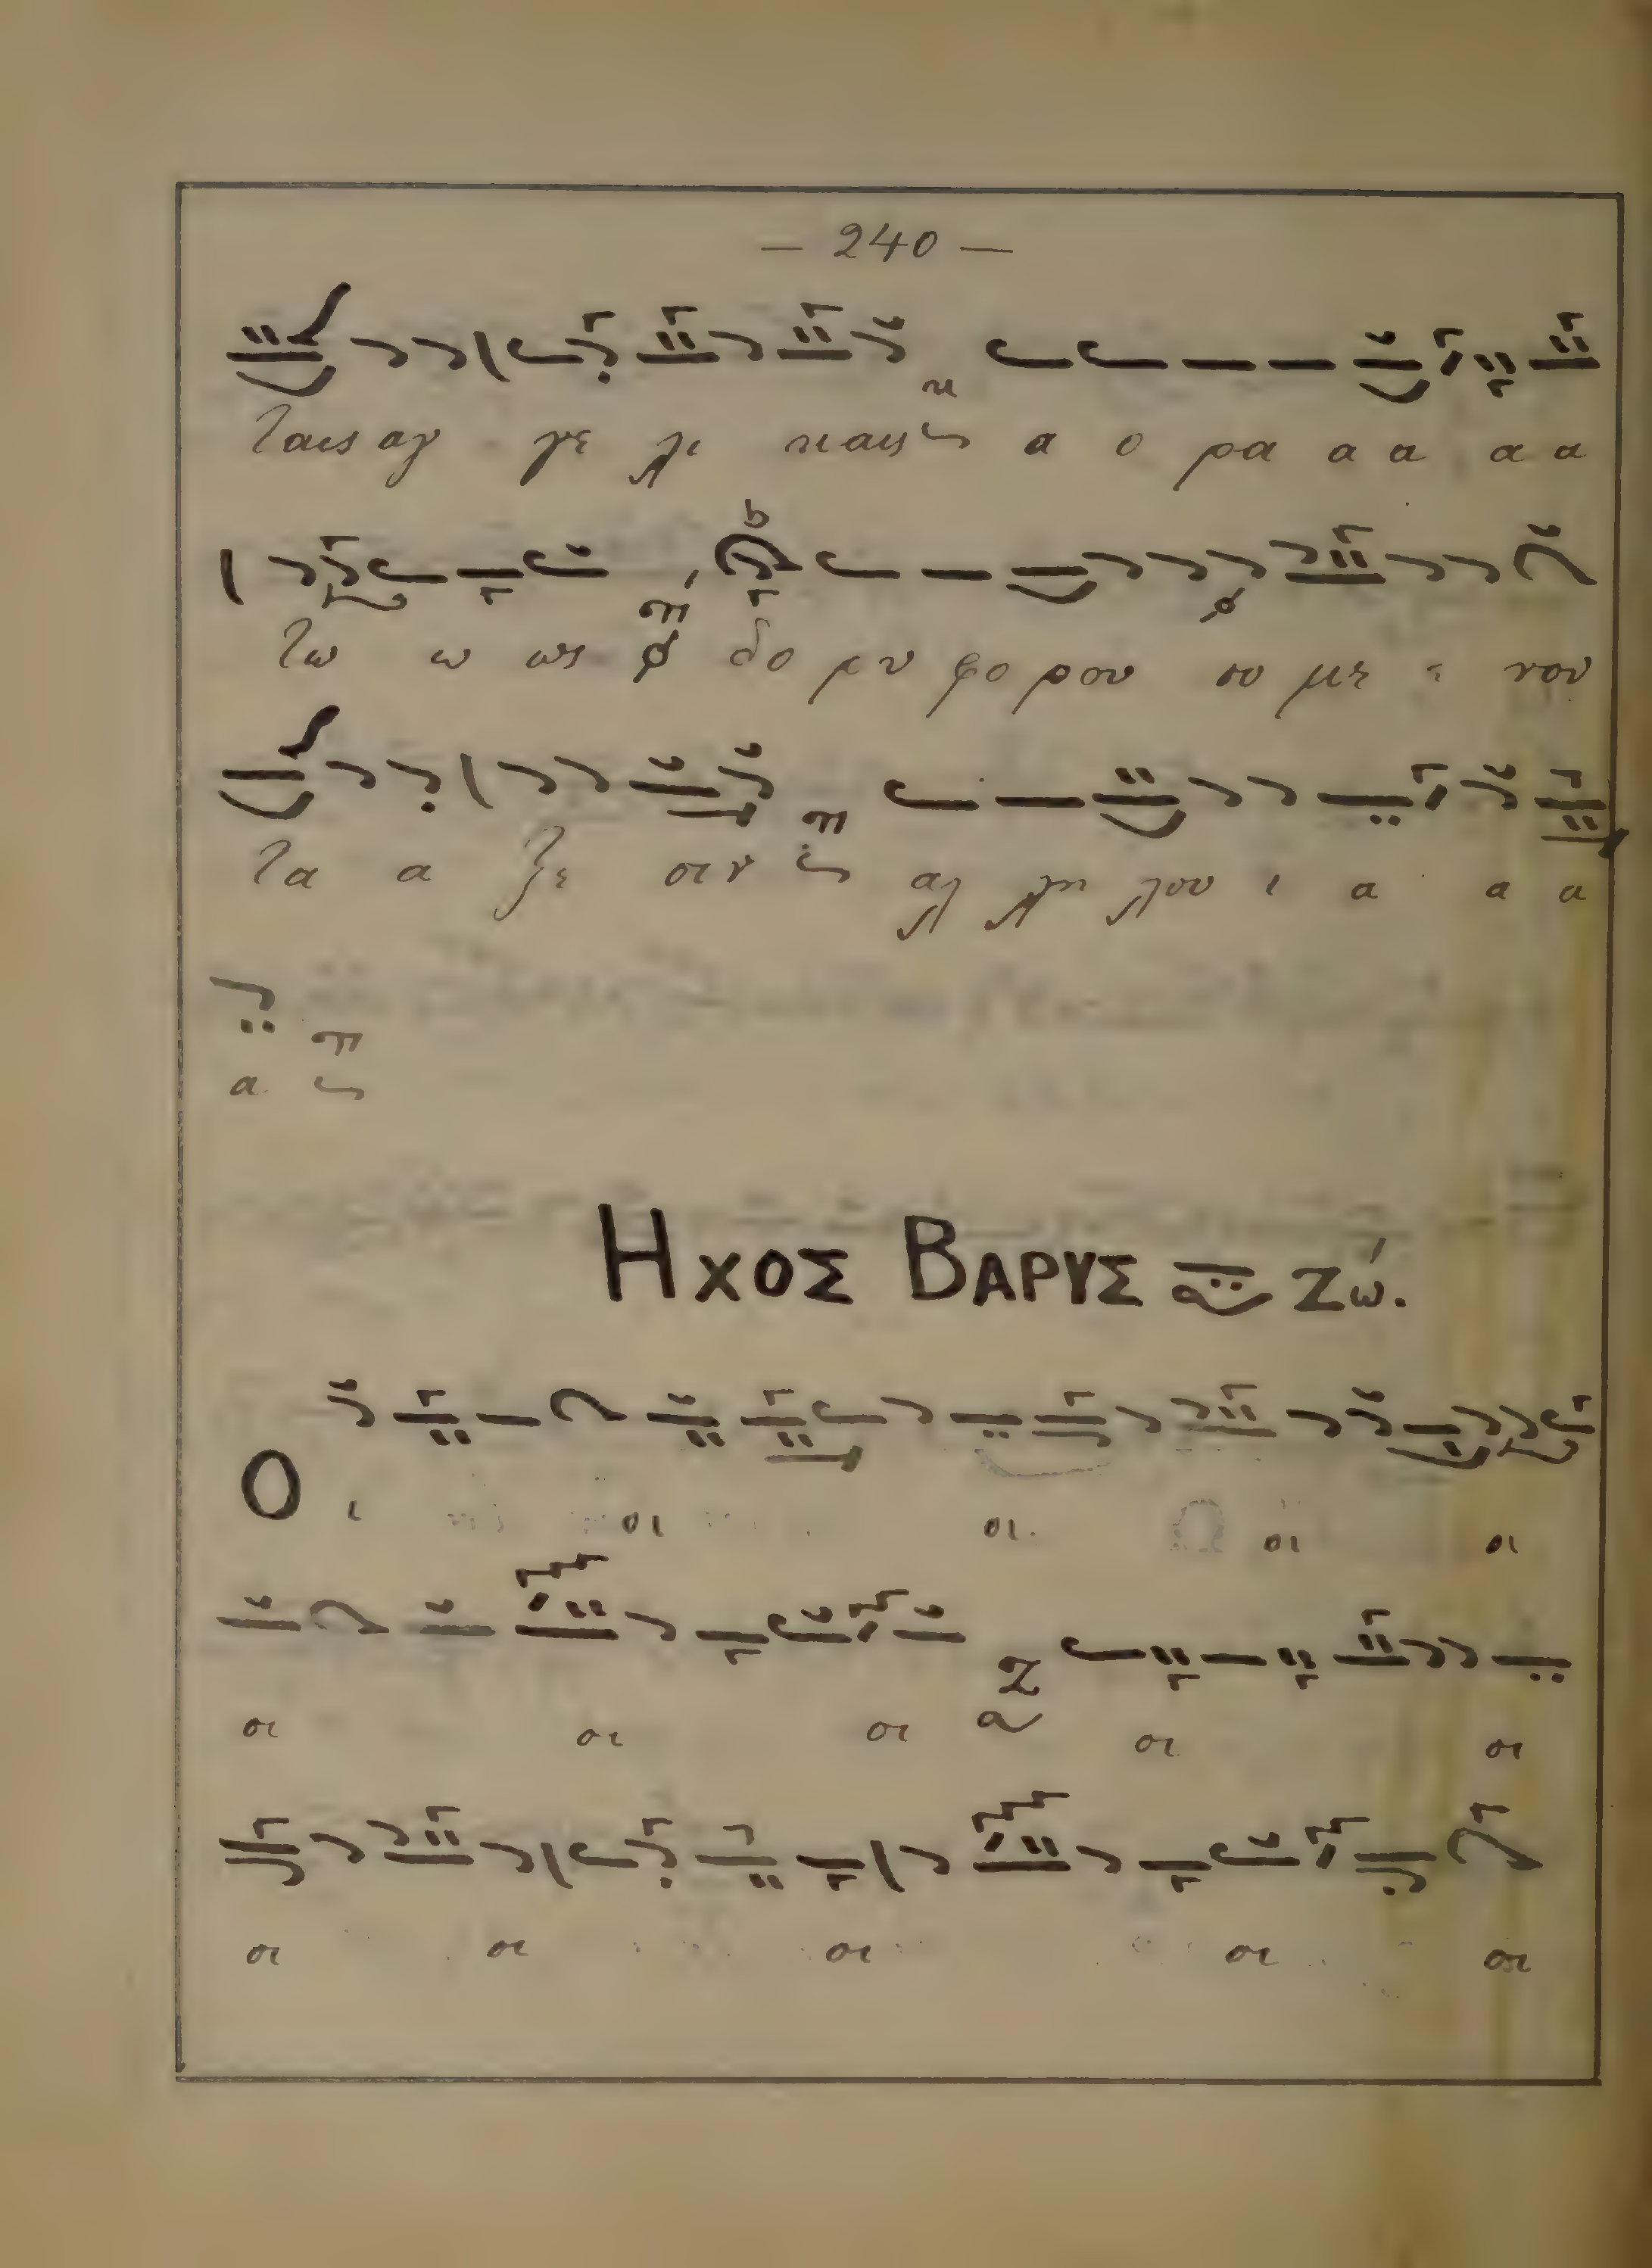 — 240 —
ταις αγ γε λι καις α ο ρα α α α α
τω ω ως δο ρυ φο ρου ου με ε νον
τα α ξε σιν αλ λη λου ι α α α
α
Ηχος Βαρυς Ζω.
Ο ι οι οι οι οι
οι οι οι οι οι
οι οι οι οι οι